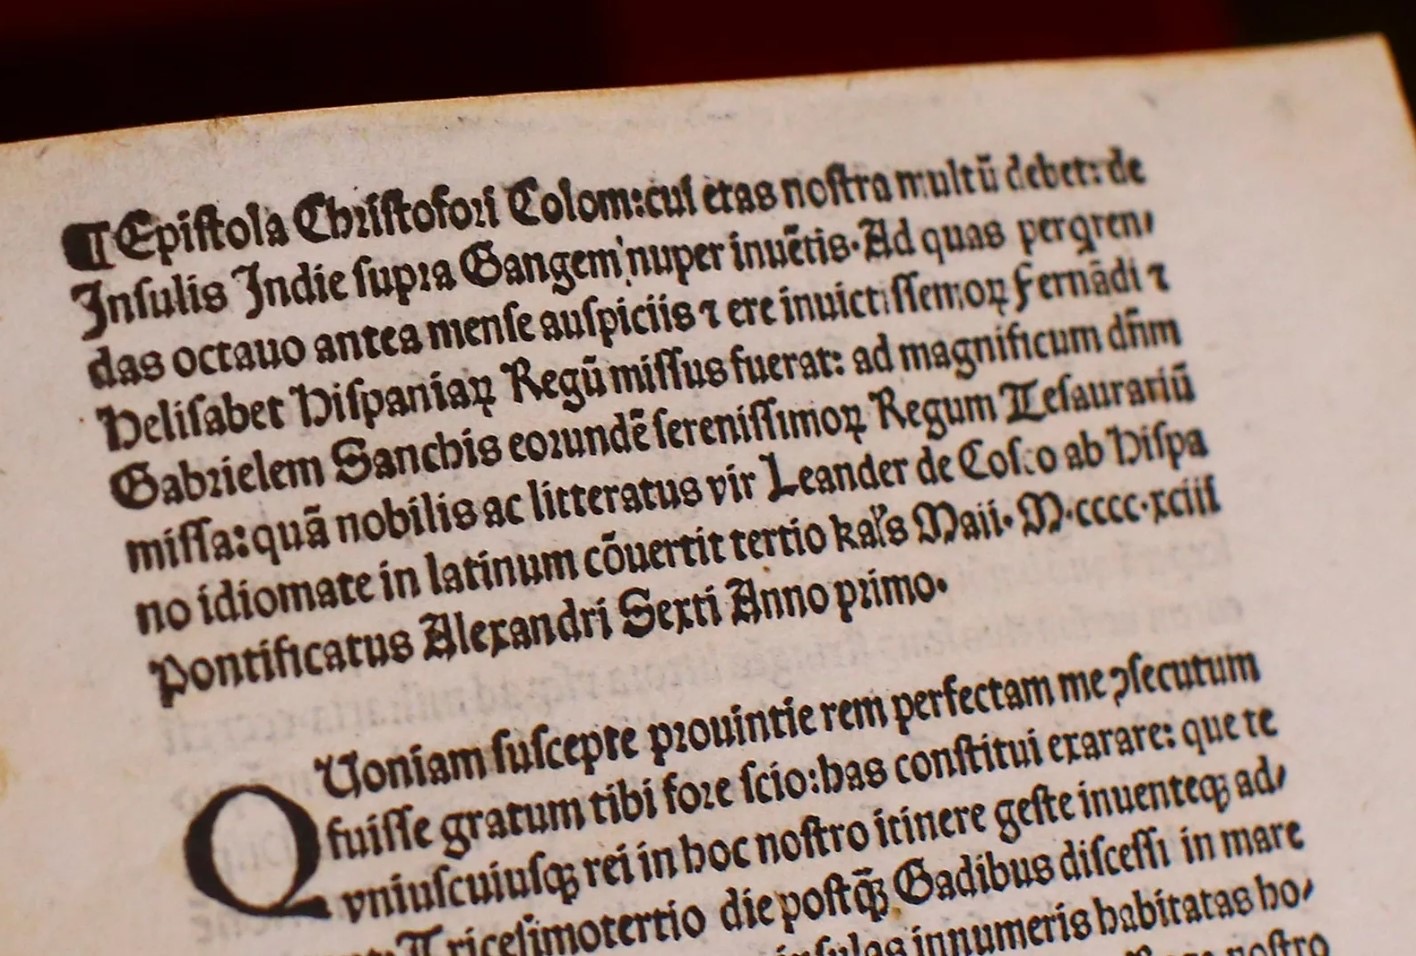 ¶ Epiſtola Chriſtofori Colom: cui etas noſtra multū debet: de
Inſulis Indie ſupra Gangem nuper inuētis. Ad quas perqren⸗
das octauo antea menſe auſpiciis ⁊ ere inuictiſſemoꝝ Fernādi ⁊
Heliſabet Hiſpaniaꝝ Regū miſſus fuerat: ad magnificum dñm
Gabrielem Sanchis eorundē ſereniſſimoꝝ Regum Teſaurariū
miſſa: quā nobilis ac litteratus vir Leander de Coſco ab Hiſpa
no idiomate in latinum cōuertit tertio kaľs Maii. M.cccc.xciii
Pontificatus Alexandri Sexti Anno primo.
QUoniam ſuſcepte prouintie rem perfectam me ꝯſecutum
fuiſſe gratum tibi fore ſcio: has conſtitui exarare: que te
vniuſcuiuſqꝫ rei in hoc noſtro itinere geſte inuenteqꝫ ad⸗
Triceſimotertio die poſtqꝫ̄ Gadibus diſceſſi in mare
inſulas innumeris habitatas ho⸗
noſtro